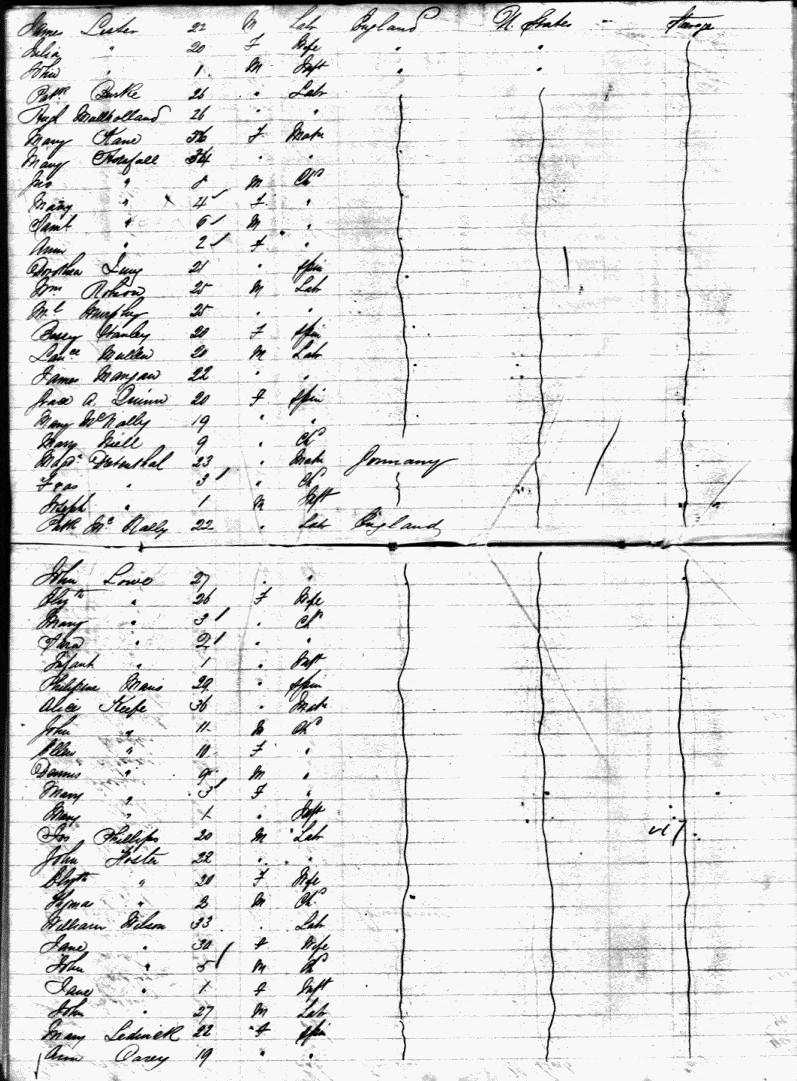 James Lister 22 M Lab England U. States –
Julia " 20 F Wife " "
John " 1 M Inft " "
Patk Burke 26 " Labr
Hugh Mullholland 26 " "
Mary Kane F Matn
Mary 34 " "
Jno " 8 M Chd
Mary " 4 F "
Saml " 6 M "
Ann " 2 F "
Dorothea 21 " Spin
Wm Robson 25 M Lab
Ml Murphy 25 " "
Bessy Stanley 20 F Spin
Lance Mullen 20 M Lab
James Mangan 22 " "
A. Quinn 20 F Spin
Mary McNally 19 " "
Mary 9 " Chd
23 " Matn Germany
3 " Chd
Joseph " 1 M Inft
Patk Mc Nally 22 " Lab England
John Lowe 27 " "
Elizth " 26 F Wife
Mary " 3 " Chd
" 2 " "
Infant " 1 " Inft
29 " Spin
Alice Keefe 36 " Matn
John " 11 M Chd
Ellen " 10 F "
Dennis " 9 M "
Mary " 3 F "
Mary " 1 " Inft
Jos Phillips 20 M Lab
John Foster 22 " "
Elizth " 20 F Wife
" M Chd
William Wilson 33 " Lab
Jane " 30 F Wife
John " 5 M Chd
Jane " 1 F Inft
John " 27 M Lab
Mary Ledwick 22 F Spin
Ann Carey 19 " "